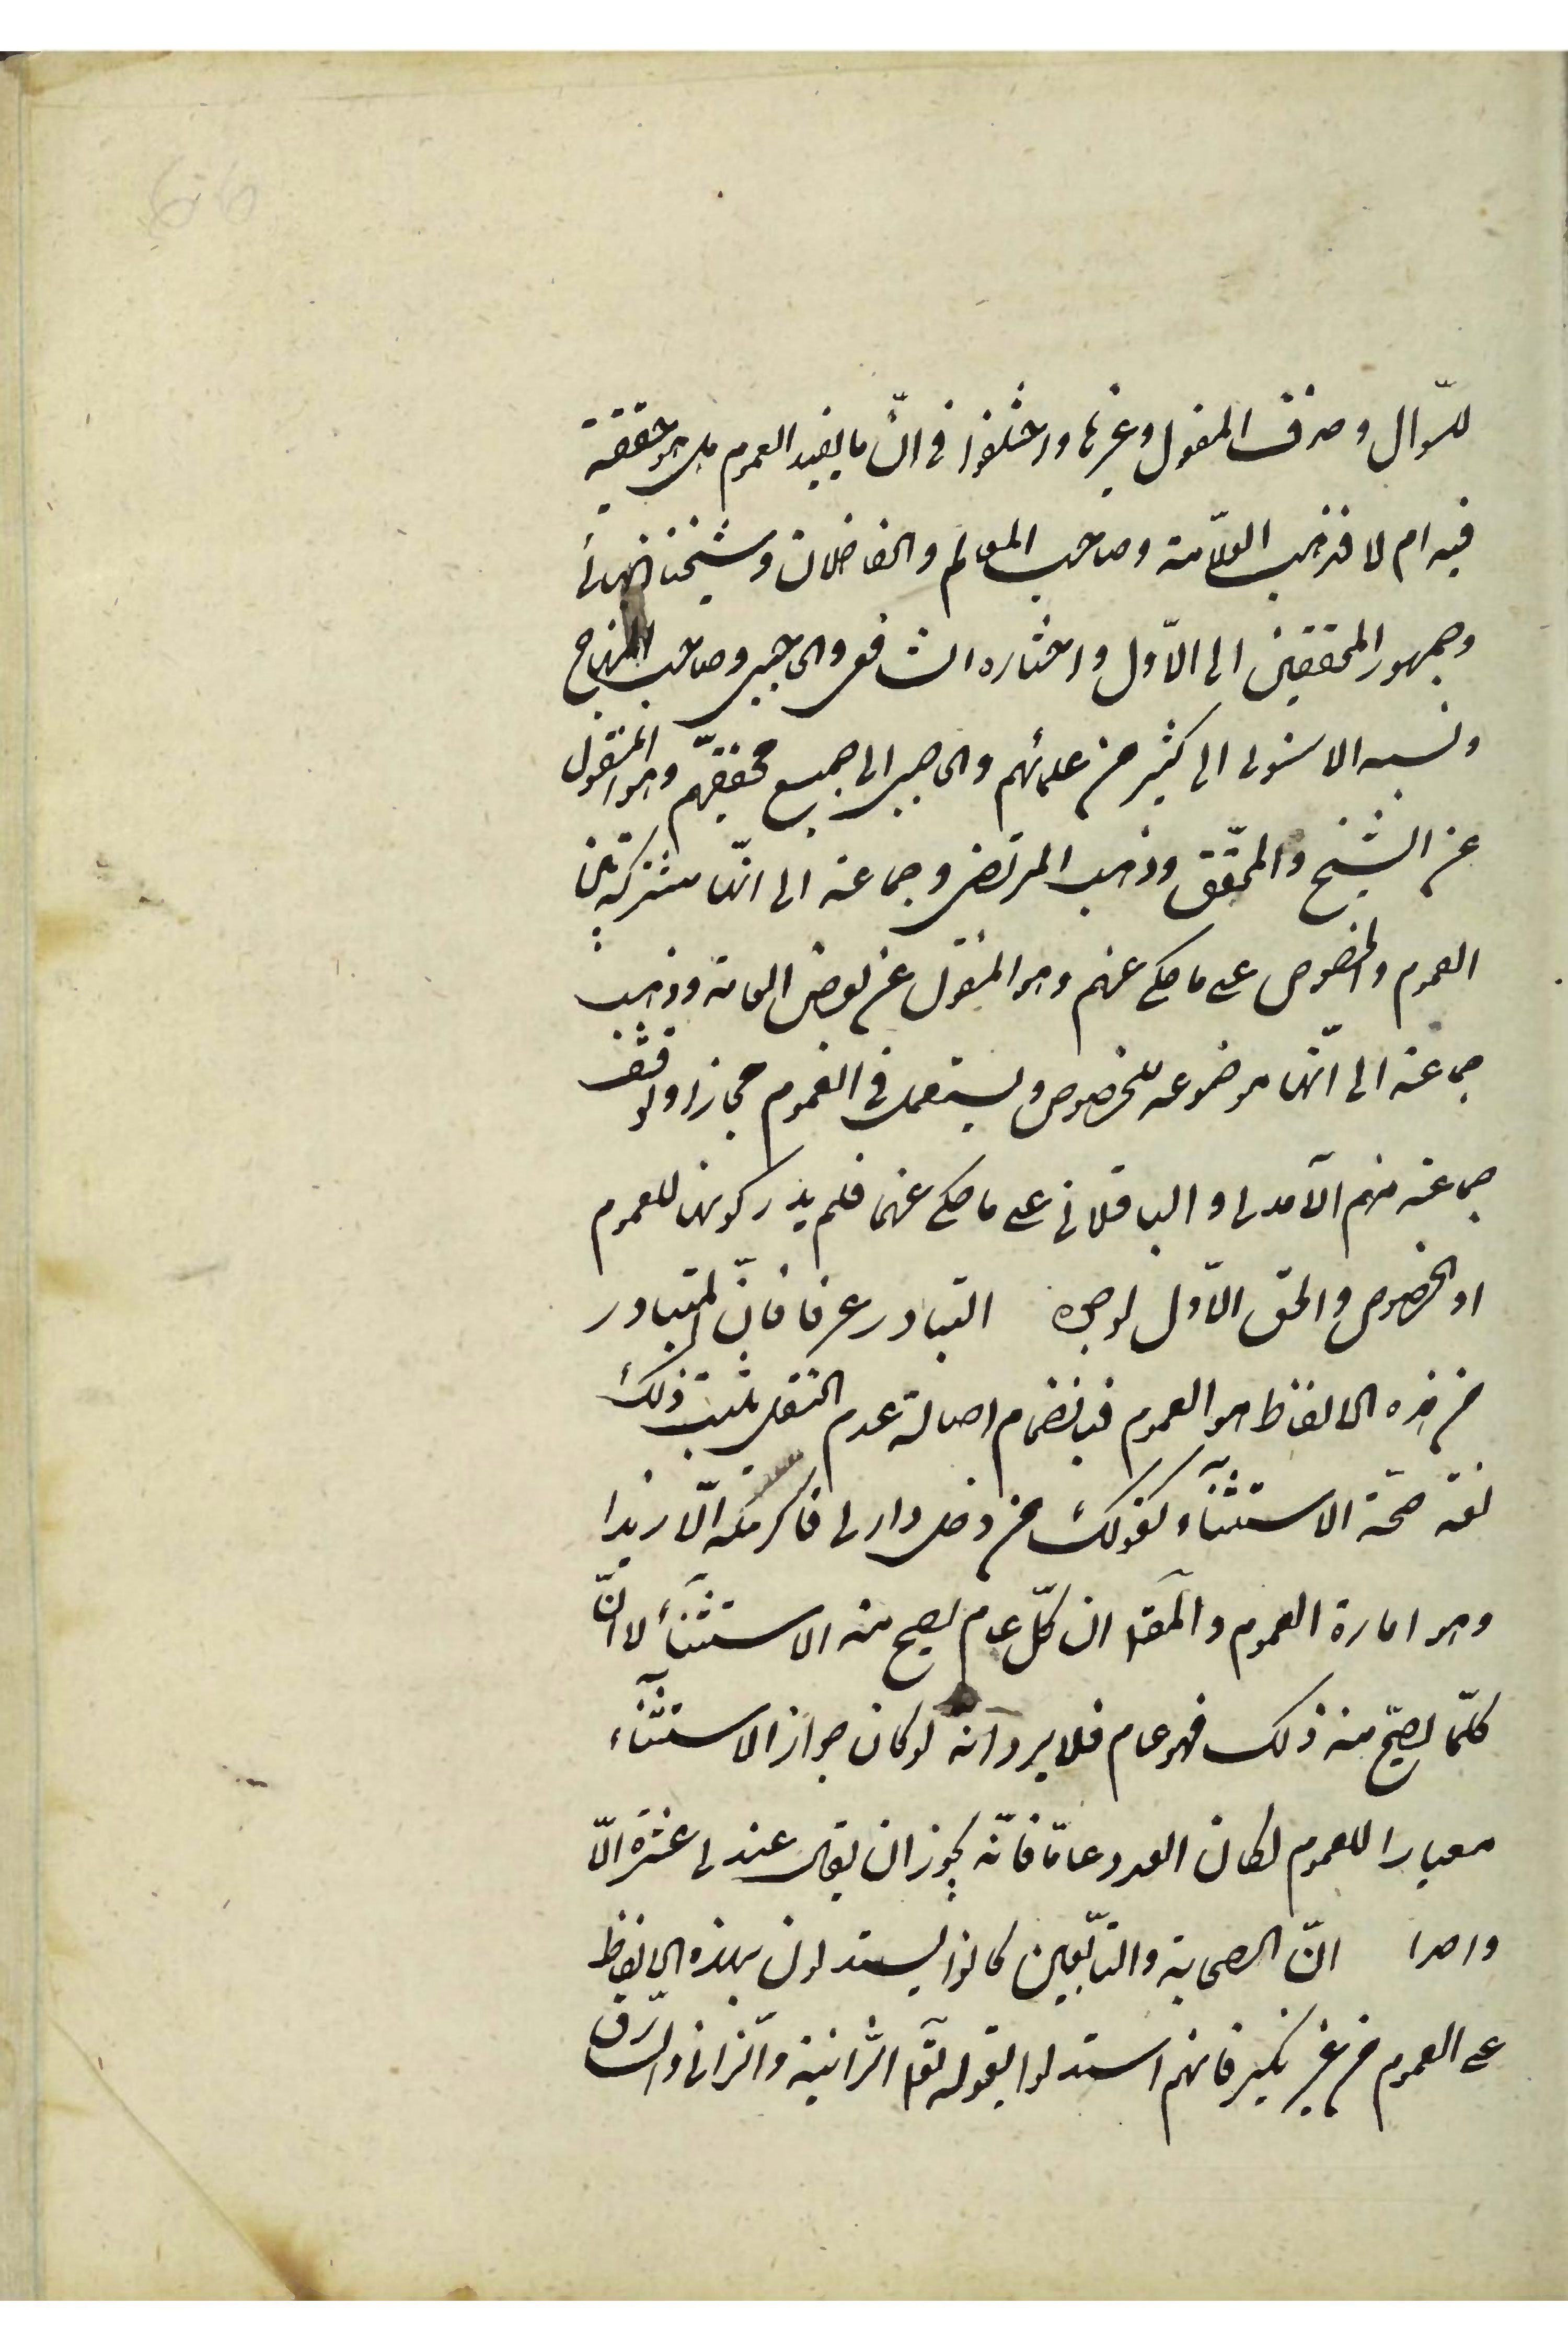 للسّؤال وحذف المفعول وغيرها واختلفوا في انّ ما يفيد العموم هل هو حقيقة
فيه ام لا فذهب العلّامة وصاحب المعالم والفاضلان وشيخنا البهائي
وجمهور المحققين الى الاّول واختاره الشافعي والحاجبي وصاحب المنهاج
ونسبه الاسنوى الى كثير من علمائهم والحاجبي الى جميع محققيهم وهو المنقول
عن الشيخ والمحقّق وذهب المرتضى وجماعة الى انّها مشتركة بين
العموم والخصوص على ما حكي عنهم وهو المنقول عن بعض العامة وذهب
جماعة الى انّها موضوعه للخصوص ويستعمل في العموم مجازا وتوقف
جماعة منهم الآمدى والباقلاني على ما حكي عنهما فلم يدر كونها للعموم
او الخصوص والحق الاّول لوجوه التبادر عرفا فانّ المتبادر
من هذه الالفاظ هو العموم فبانضمام اصالة عدم النقل يثبت ذلك
لغة صحّة الاستثنآء كقولك من دخل دارى فاكرمه الّا زيدا
وهو امارة العموم والمقدمة ان كلّ عام يصح منه الاستثنآء لا انّ
كلّما يصحّ منه ذلك فهو عام فلا يرد انّه لو كان جواز الاستثنآء
معيارا للعموم لكان العدد عامّا فانّه يجوز ان يقال عندى عشرة الّا
واحدا انّ الصحابة والتابعين كانوا يستدلون بهذه الالفاظ
على العموم من غير نكير فانهم استدلوا بقوله تعآ الزّانية والزّاني والسّارق